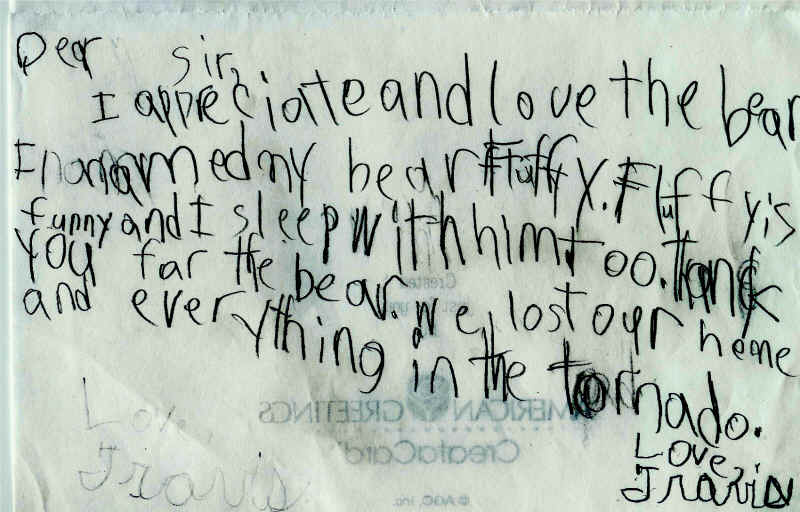 Dear Sir,
I appreciate and love the bear
I named my bear Fluffy. Fluffy is
funny and I sleep with him too. Thank
you far the bear. We lost our home
and everything in the tornado.
Love,
Travis
Love,
Travis
AMERICAN GREETINGS
CreataCard
© AGC, Inc.